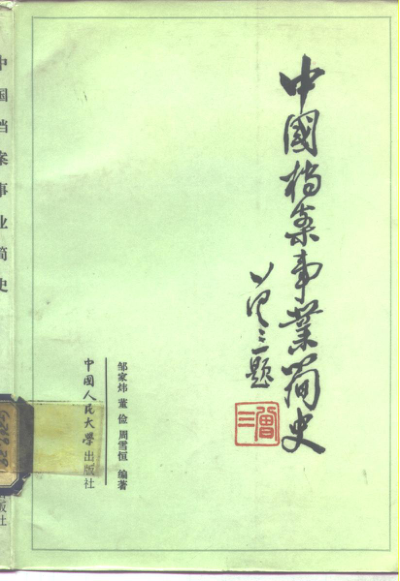 中國档案事業简史
曾三題
曾三
邹家炜 董俭 周雪恒 编著
中國人民大学出版社
中国档案事业简史
出版社